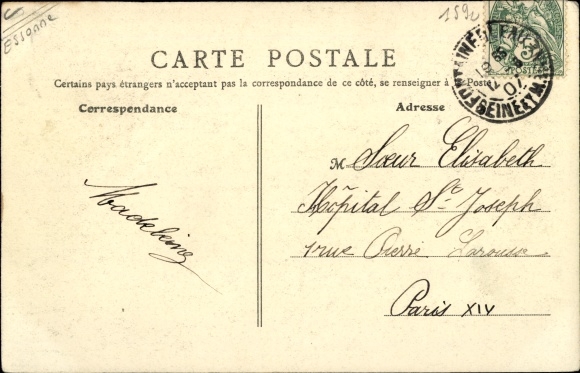 Essonne
159
CARTE POSTALE
Certains pays étrangers n'acceptant pas la correspondance de ce côté, se renseigner à la Poste
Correspondance
Adresse
M Sœur Elisabeth
Hôpital St. Joseph
1 rue Pierre Larousse
Paris XIV
Madeleine
FONTAINEBLEAU
SEINE ET M
07
POSTES